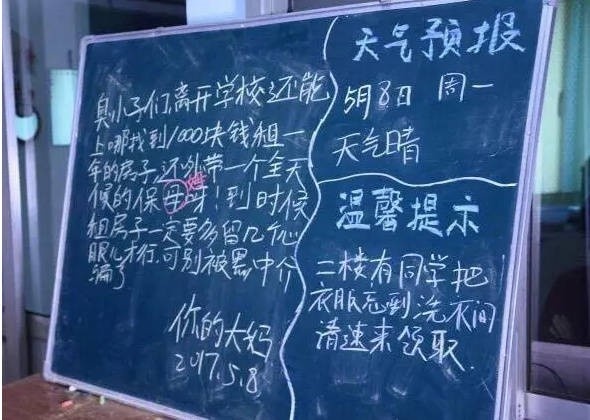 臭小子们,离开学校了还能
上哪找到1000块钱租一
年的房子,还附带一个全天
候的保母呀!到时候
姆
租房子一定要多留几个心
眼儿才行.可别被黑中介
骗了
你的大妈
2017.5.8
天气预报
5月8日 周一
天气晴
温馨提示
二楼有同学把
衣服忘到洗衣间
请速来领取.